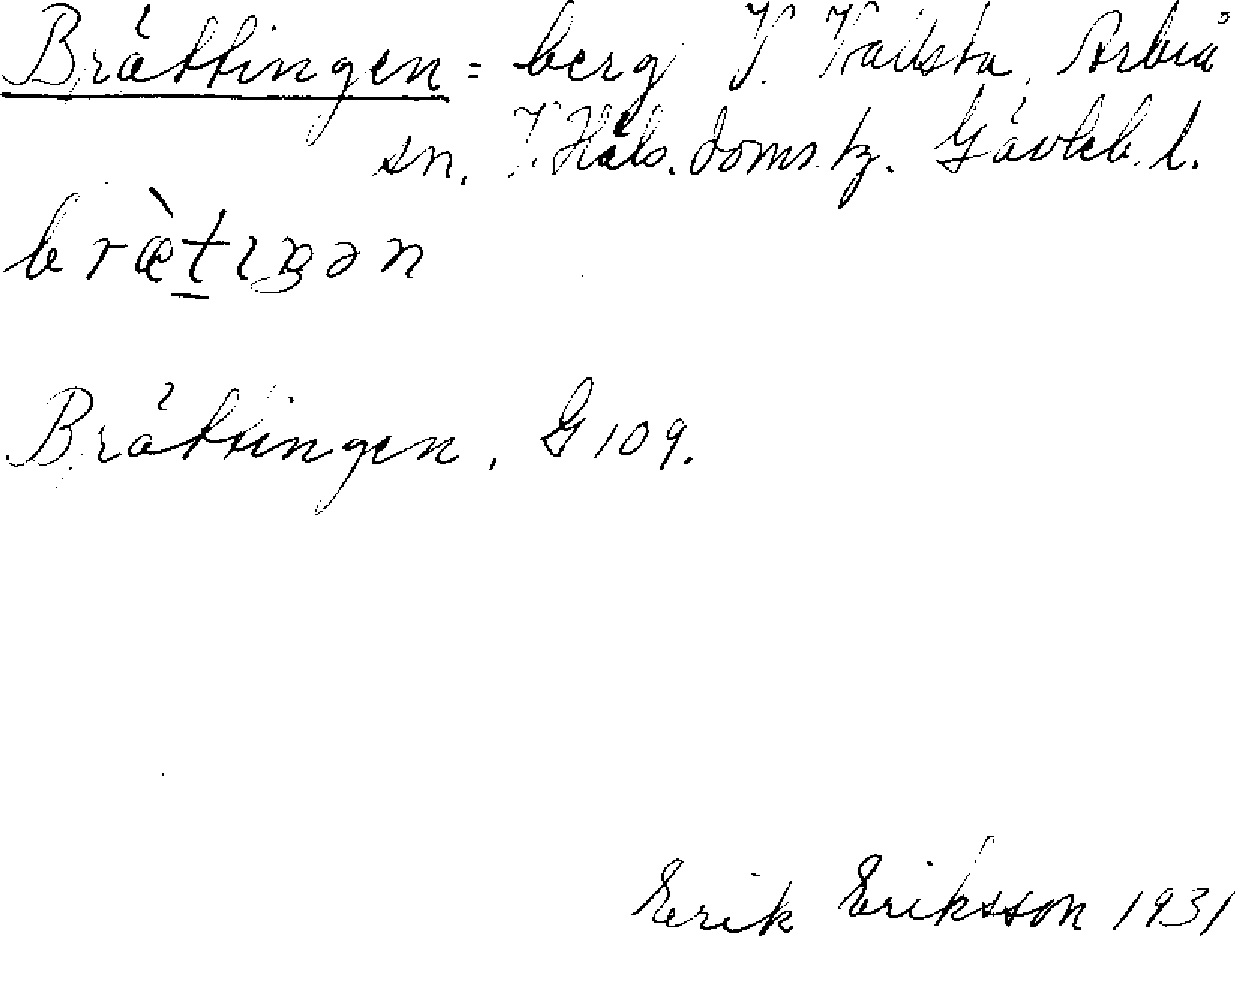 Brättingen = berg V. Kailsta, Arbrå
sn. V. Häls. doms.tz. Gävleb. l.
bræ̀tıŋən
Brättingen, G 109.
Erik Eriksson 1931